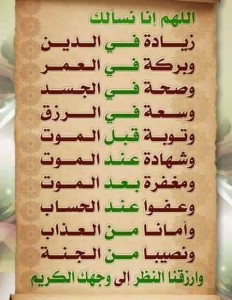 اللهم إنا نسألك
زيادة في الدين
وبركة في العمر
وصحة في الجسد
وسعة في الرزق
وتوبة قبل الموت
وشهادة عند الموت
ومغفرة بعد الموت
وعفوا عند الحساب
وأمانا من العذاب
ونصيبا من الجنة
وارزقنا النظر إلى وجهك الكريم